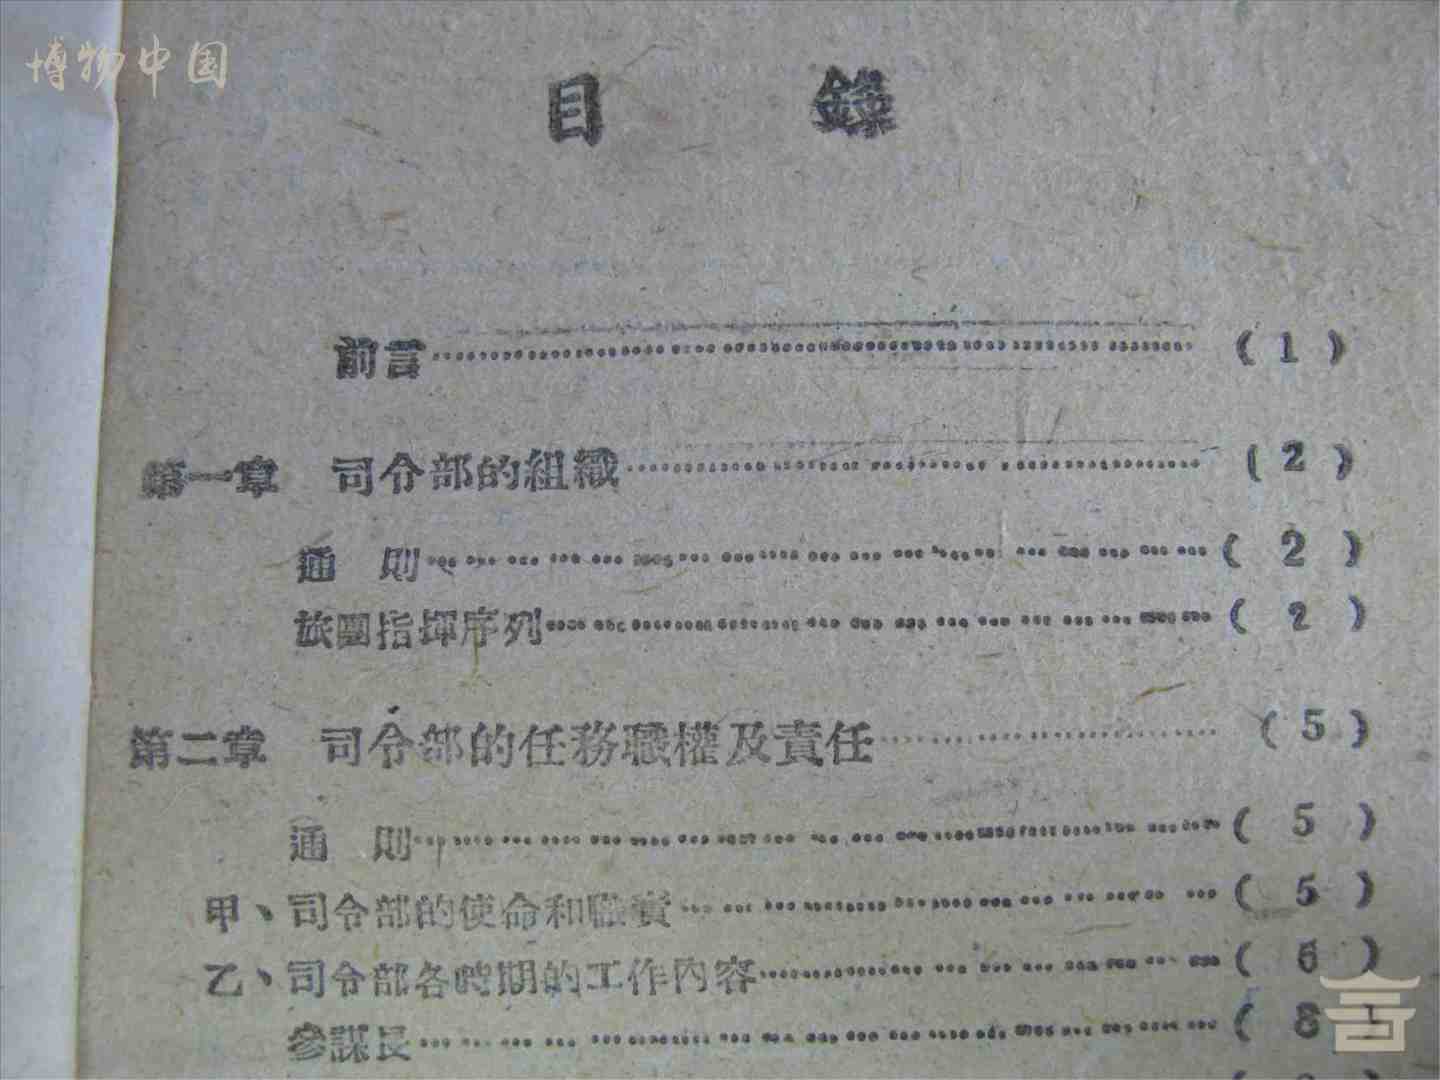 博物中国
目　錄
前言………………………………（1）
第一章　司令部的組織………………………（2）
通　則………………………………（2）
旅團指揮序列………………………………（2）
第二章　司令部的任務職權及責任………………（5）
通　則………………………………（5）
甲、司令部的使命和職責………………………（5）
乙、司令部各時期的工作內容………………（6）
參謀長………………………………（8）